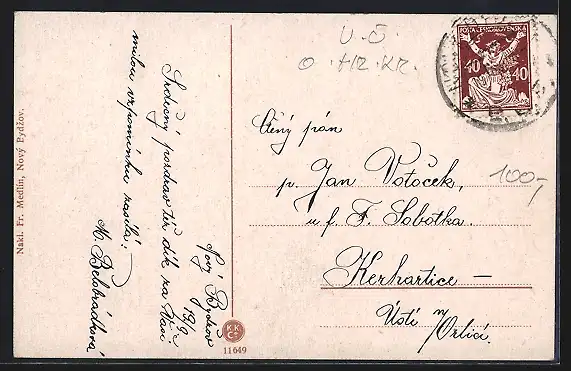 Nový Bydžov
19/9
Srdečný pozdrav též dík za Vaši
milou vzpomínku zasílá.
M. Bělobrádková
Nakl. Fr. Medlin, Nový Bydžov.
KK
Co
11649
U.O.
O. HR. KR.
POŠTA ČESKOSLOVENSKÁ
40 40
100,-
Ctěný pán
p. Jan Votoček,
u f. F. Sobotka
Kerhartice –
Ústí n/Orlicí.